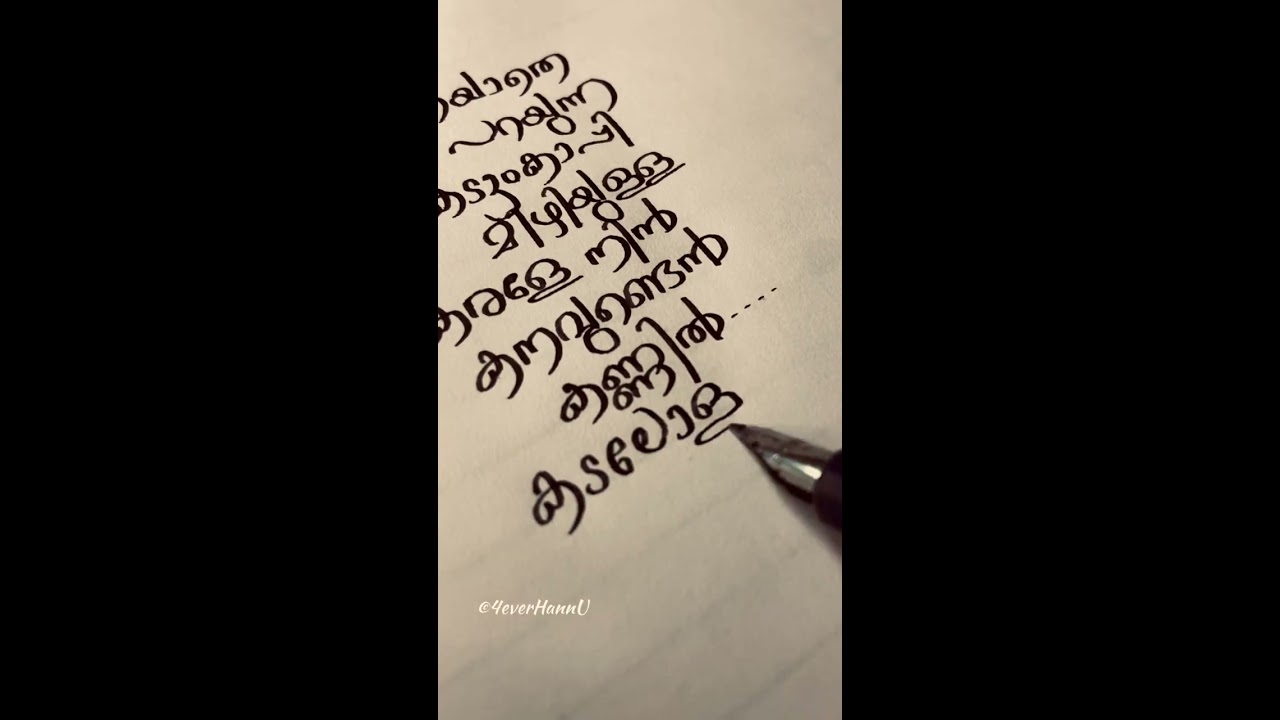 റയാതെ
പറയുന്ന
കടുംകാപ്പി
മിഴിയുള്ള
കരളേ നിൻ
കനവുണ്ടെൻ
കണ്ണിൽ.....
കടലോള
@4everHannU